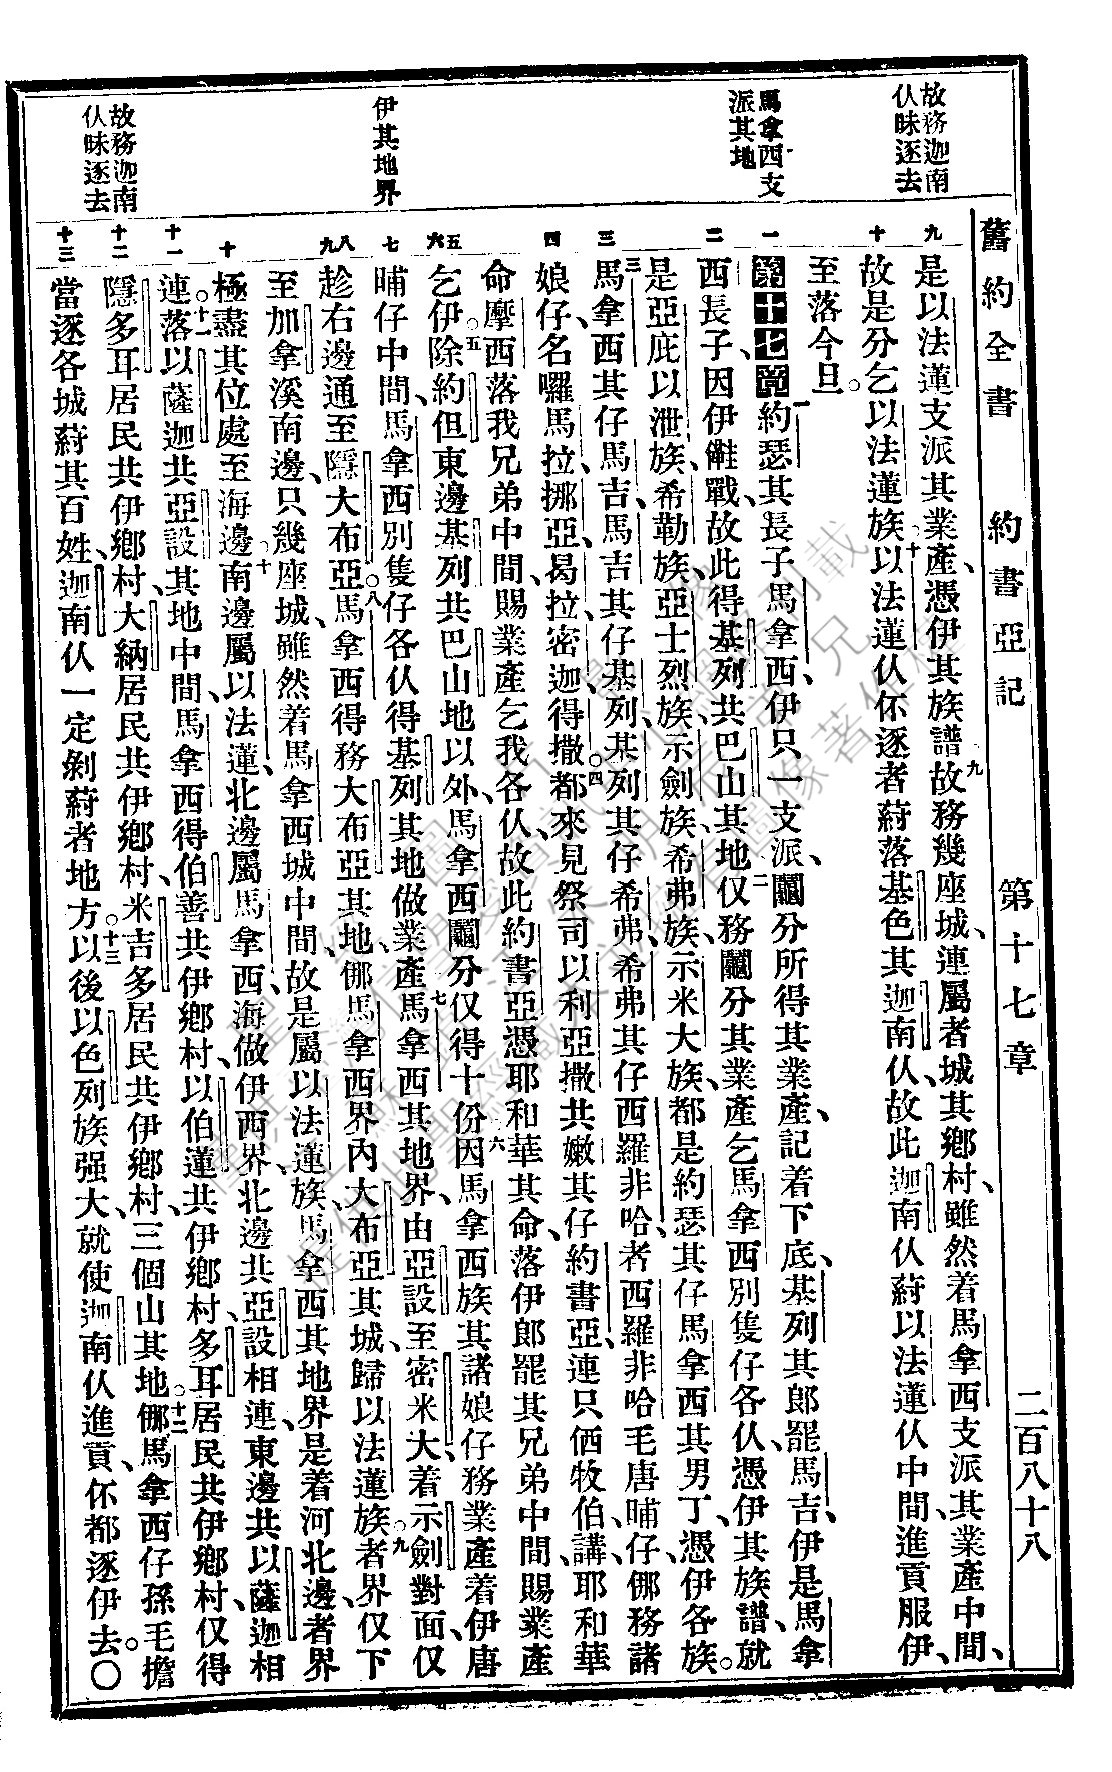 舊約全書　約書亞記　第十七章　二百八十八
故務迦南仈昧逐去
馬拿西支派其地
伊其地界
故務迦南仈昧逐去
九
是以法蓮支派其業產、憑伊其族譜、九故務幾座城、連屬者城其鄉村、雖然着馬拿西支派其業產中間、
十
故是分乞以法蓮族、十以法蓮仈伓逐者蔚落基色其迦南仈、故此迦南仈蔚以法蓮仈中間進貢服伊、
至落今旦。
一
第十七章 一約瑟其長子馬拿西、伊只一支派、鬮分所得其業產、記着下底、基列其郎罷馬吉、伊是馬拿
二
西長子、因伊𠆧戰、故此得基列共巴山其地、二仅務鬮分其業產乞馬拿西別隻仔各仈、憑伊其族譜、就
是亞庇以泄族、希勒族、亞士烈族、示劍族、希弗族、示米大族、都是約瑟其仔馬拿西其男丁、憑伊各族。
三
三馬拿西其仔馬吉、馬吉其仔基列、基列其仔希弗、希弗其仔西羅非哈、者西羅非哈毛唐晡仔、㑚務諸
四
娘仔、名囉馬拉、挪亞、曷拉、密迦、得撒、四都來見祭司以利亞撒、共嫩其仔約書亞、連只仴牧伯、講、耶和華
命摩西落我兄弟中間、賜業產乞我各仈、故此約書亞憑耶和華其命、落伊郎罷其兄弟中間、賜業產
五六
乞伊。五除約但東邊基列共巴山地以外、馬拿西鬮分仅得十份、六因馬拿西族其諸娘仔務業產着伊唐
七
晡仔中間、馬拿西別隻仔各仈得基列其地做業產。七馬拿西其地界、由亞設至密米大、着示劍對面、仅
八九
趁右邊通至隱大布亞、八馬拿西得務大布亞其地、㑚馬拿西界內大布亞其城、歸以法蓮族。九者界仅下
至加拿溪南邊、只幾座城、雖然着馬拿西城中間、故是屬以法蓮族、馬拿西其地界是着河北邊、者界
十
極盡其位處至海邊、十南邊屬以法蓮、北邊屬馬拿西、海做伊西界、北邊共亞設相連、東邊共以薩迦相
十一
連。十一落以薩迦共亞設其地中間、馬拿西得伯善共伊鄉村、以伯蓮共伊鄉村、多耳居民共伊鄉村、仅得
十二
隱多耳居民共伊鄉村、大納居民共伊鄉村、米吉多居民共伊鄉村、三個山其地。十二㑚馬拿西仔孫毛擔
十三
當逐各城蔚其百姓、迦南仈一定剿蔚者地方。十三以後以色列族强大、就使迦南仈進貢、伓都逐伊去。〇